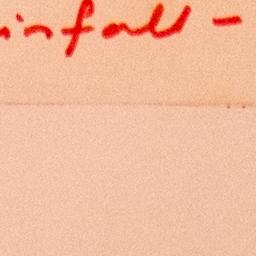 infall -